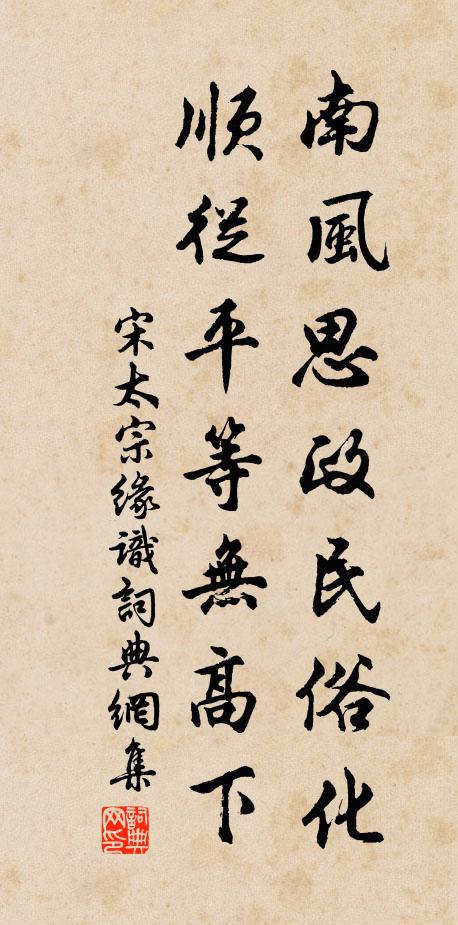 南風思政民俗化
順從平等無高下
宋太宗緣識詞典網集
詞典網印